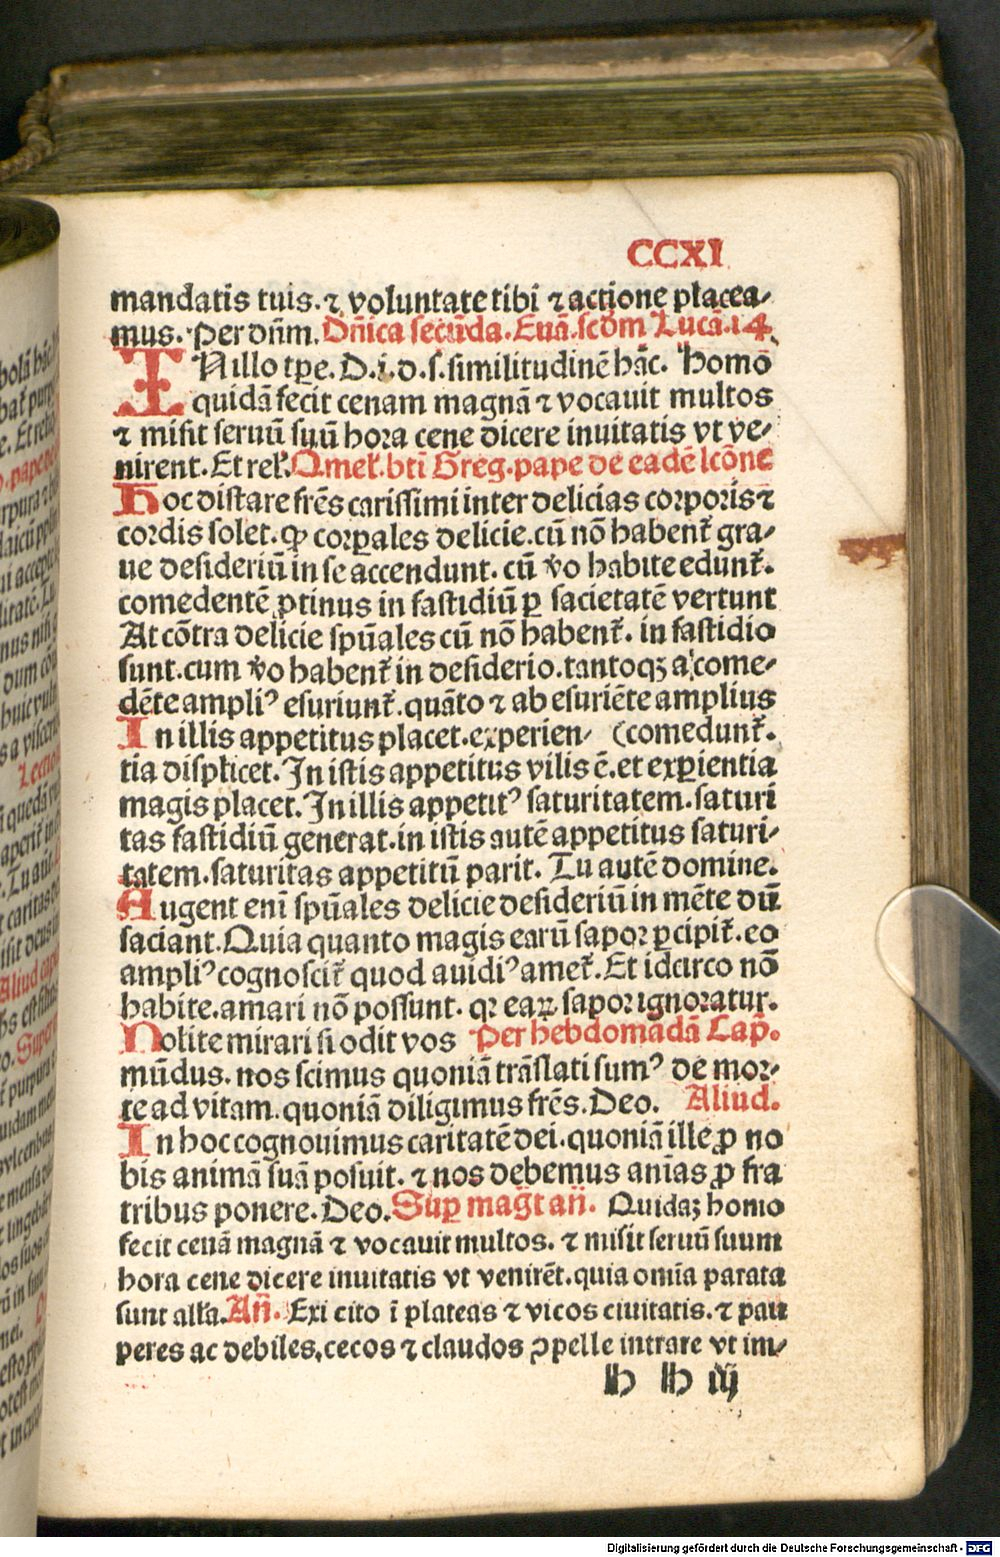 CCXI
mandatis tuis. ⁊ voluntate tibi ⁊ actione placea⸗
mus. Per dn̄m. Dn̄ica secūda. Euā. scd̄m Lucā. 14.
IN illo tp̄e. D. i. d. s. similitudinē hāc. Homō
quidā fecit cenam magnā ⁊ vocauit multos
⁊ misit seruū suū hora cene dicere inuitatis vt ve⸗
nirent. Et rel̄. Omel̄. bt̄i Greg. pape de eadē lc̄one
Hoc distare fr̄es carissimi inter delicias corporis ⁊
cordis solet. ꝙ corꝑales delicie. cū nō habent̄ gra⸗
ue desideriū in se accendunt. cū v̄o habite edunt̄.
comedentē ꝓtinus in fastidiū ꝑ sacietatē vertunt
At cōtra delicie spūales cū nō habent̄. in fastidio
sunt. cum v̄o habent̄ in desiderio. tantoqꝫ a come⸗
dēte ampliꝰ esuriunt̄. quāto ⁊ ab esuriēte amplius
In illis appetitus placet. experien⸗ (comedunt̄.
tia displicet. In istis appetitus vilis ē. et exꝑientia
magis placet. In illis appetitꝰ saturitatem. saturi
tas fastidiū generat. in istis autē appetitus saturi⸗
tatem. saturitas appetitū parit. Tu autē domine.
Augent enī spūales delicie desideriū in mēte dū
saciant. Quia quanto magis earū sapor ꝑcipit̄. eo
ampliꝰ cognoscit̄ quod auidiꝰ amet̄. Et idcirco nō
habite. amari nō possunt. qꝛ eaꝝ sapor ignoratur.
Nolite mirari si odit vos Per hebdomadā Cap̄.
mūdus. nos scimus quoniā trāslati sumꝰ de mor⸗
te ad vitam. quoniā diligimus fr̄es. Deo. Aliud.
In hoc cognouimus caritatē dei. quoniā ille ꝓ no
bis animā suā posuit. ⁊ nos debemus aniās ꝓ fra
tribus ponere. Deo. Suꝑ maḡt an̄. Quidaꝫ homo
fecit cenā magnā ⁊ vocauit multos. ⁊ misit seruū suum
hora cene dicere inuitatis vt venirēt. quia omīa parata
sunt all̄a. An̄. Exi cito ī plateas ⁊ vicos ciuitatis. ⁊ pau
peres ac debiles, cecos ⁊ claudos ꝯpelle intrare vt im⸗
h h iij
Digitalisierung gefördert durch die Deutsche Forschungsgemeinschaft - DFG